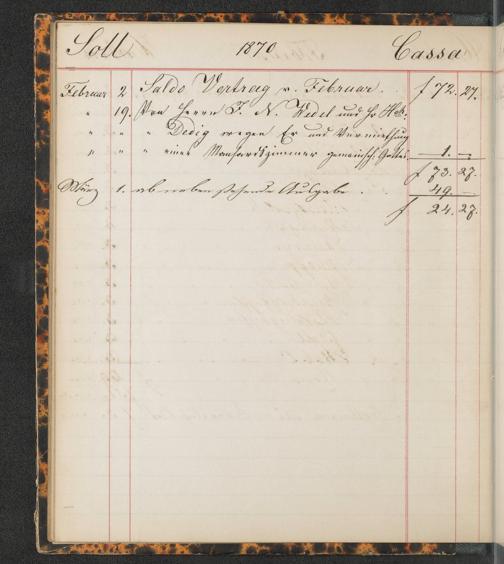 Soll 1870 Cassa
Februar 2 Saldo Vortrag v. Februar. f 72. 27.
" 19. Von Herrn J. N. und Hr
" " " " wegen Er und Vermiethung
" " " eines Mansardzimmer gemeinsch. 1. —
f 73. 27.
März 1. ab nebenstehende Ausgabe . . 49. —
f 24. 27.